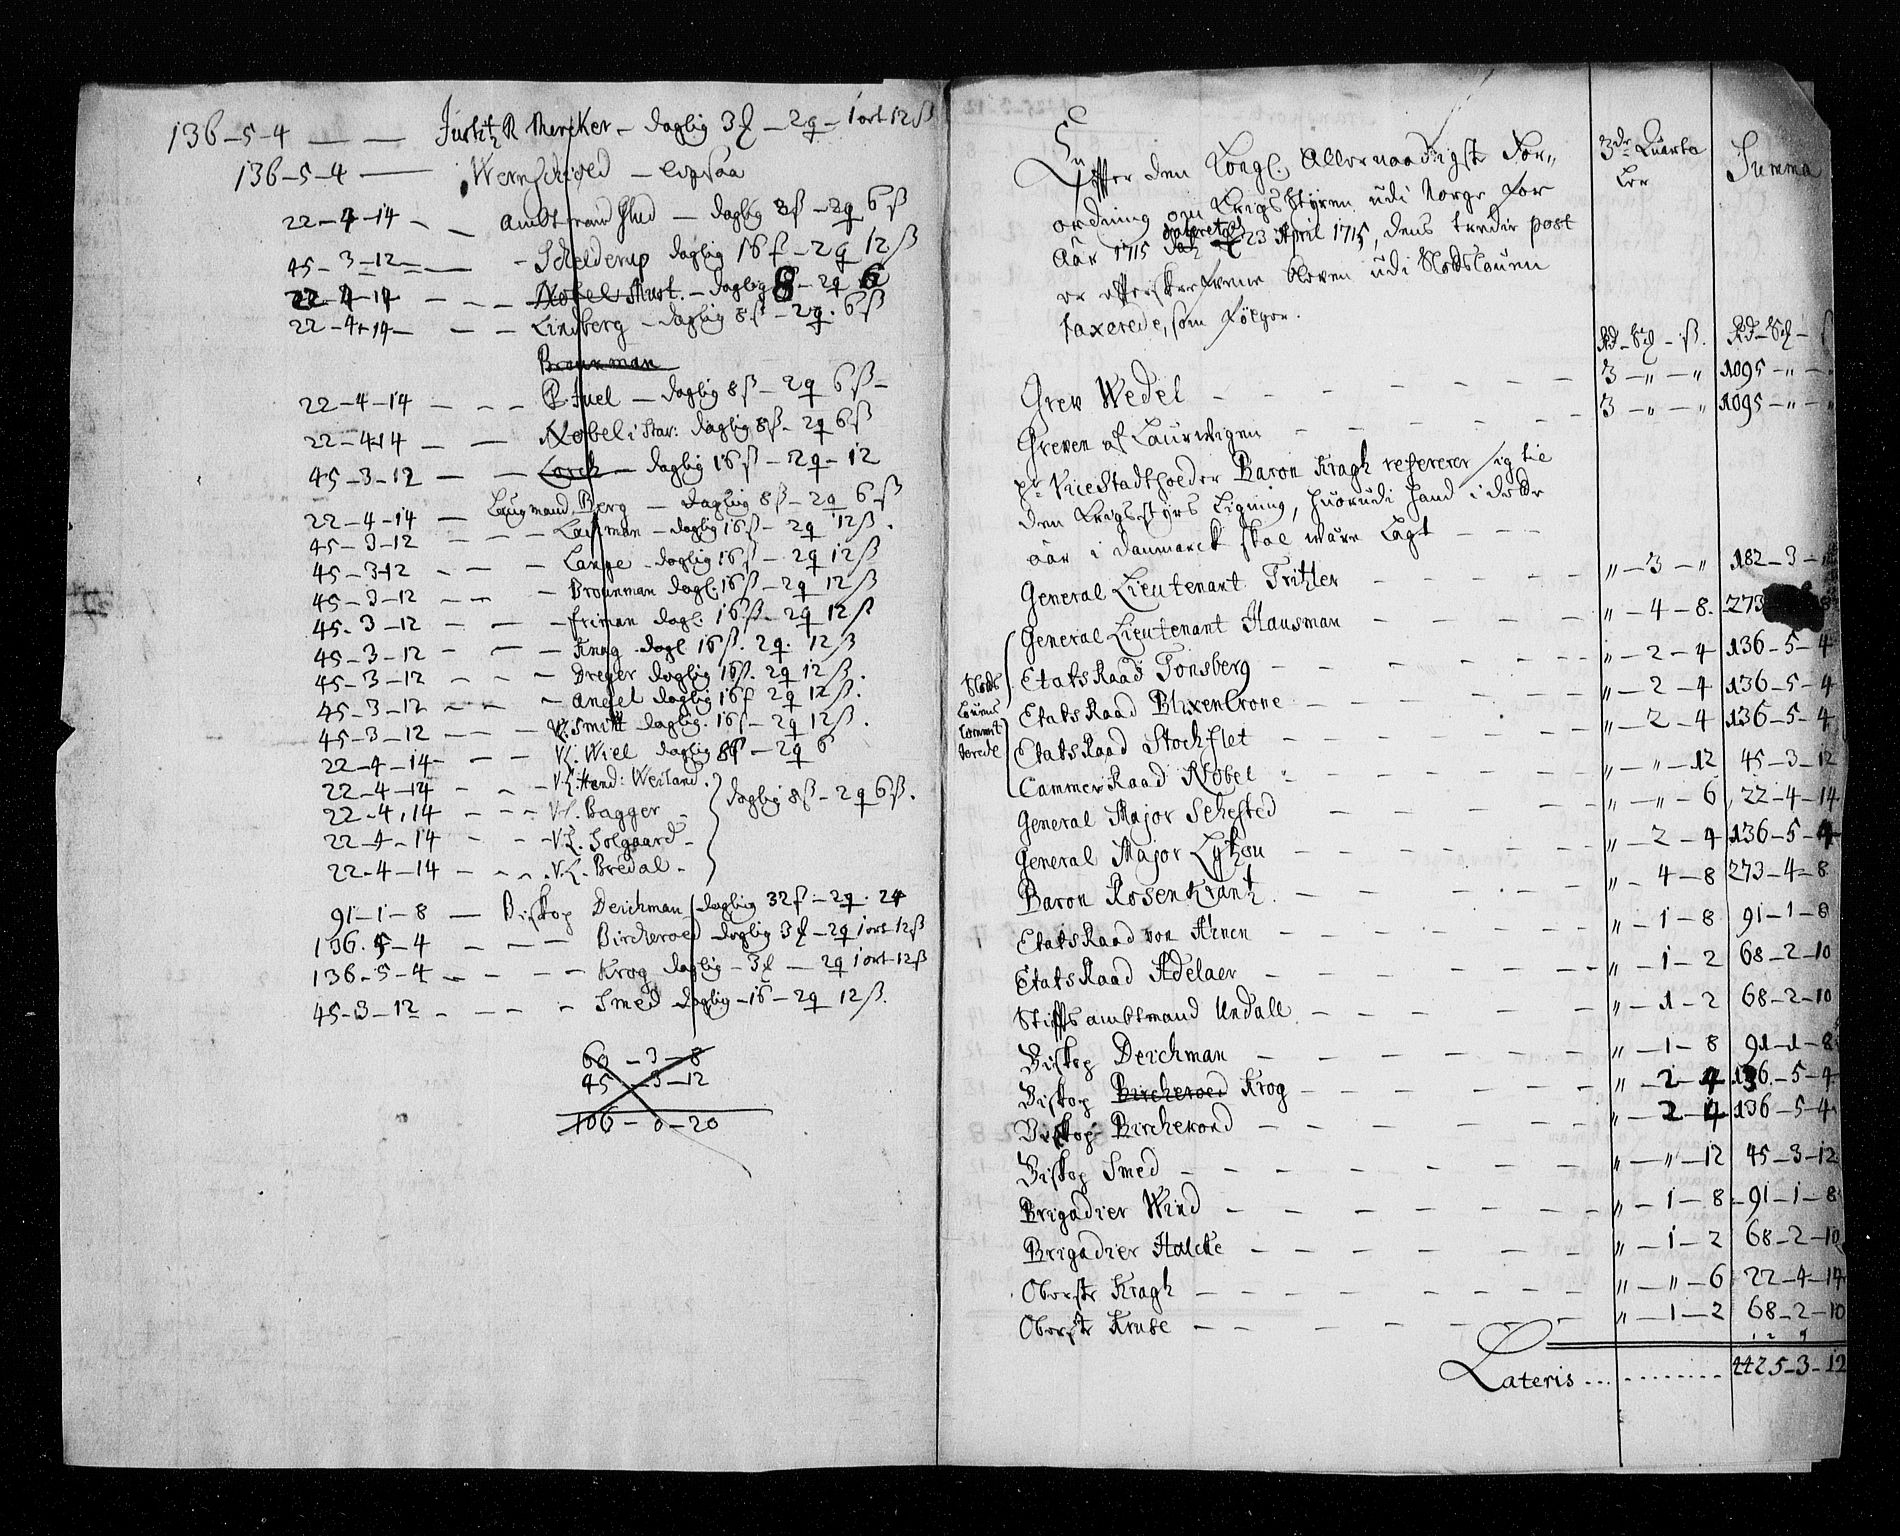 136-5-4 — — Justitz R Mercker - daglig 3 ɉ - 2 q - 1 ort 12 ß
136-5-4 — Wernschiold - ligesaa
22-4-14 - - Ambtmand Glud - daglig 8 ß - 2 q 6 ß
45-3-12 - - Schelderup daglig 16 ß - 2 q 12 ß
22-4-14 - - - Nobel Must. - daglig 8 - 2 q 6
22-4-14 - - - Lindberg - daglig 8 ß - 2 q. 6 ß
Brounman
22-4-14 - - - P. Juel - daglig 8 ß - 2 q 6 ß -
22-4-14 - - Nobel i Stav: daglig 8 ß - 2 q 6 ß
45-3-12 - - Lorck - daglig 16 ß - 2 q - 12
22-4-14 - Laugmand Berg - daglig 8 ß - 2 q 6 ß
45-3-12 - - - Lachman - daglig 16 ß - 2 q 12 ß.
45-3-12 - - - Lange - daglig 16 ß - 2 q 12 ß
45-3-12 - - - Brounman dagl. 16 ß - 2 q 12 ß
45-3-12 - - - Friman dagl. 16 ß - 2 q 12 ß
45-3-12 - - - Knag - dagl 16 ß. 2 q. 12 ß
45-3-12 - - - Dreyer daglig 16 ß. 2 q 12 ß.
45-3-12 - - - Angel daglig 16 ß 2 q 12 ß.
45-3-12 - - - V.L. Smitt daglig. 16 ß - 2 q 12 ß.
22-4-14 - - - V.L. Wiel daglig 8 ß - 2 q 6
22-4-14 - - - V.L. Hend: Weiland.
22-4-14 - - - V.L. Bagger - daglig 8 ß - 2 q 6 ß.
22-4-14 - - - V.L. Solgaard -
22-4-14 - - - V.L. Bredal -
91-1-8 — Biskop Deichman daglig 32 ß - 2 q. 24
136-5-4 - - - Bircherod daglig 3 ɉ - 2 q 1 ort 12 ß
136-5-4 - - - Krog daglig - 3 ɉ - 2 q 1 ort 12 ß
45-3-12 - - - Smed daglig - 16 - 2 q 12 ß.
60-3-8
45-3-12
106-0-20
Efter den Kongl. Allernaadigste For-
ordning om Krigs Styren udi Norge for
Aar 1715 dateret 23 April 1715, dens tredie post
er efterskrefvene Herren udi Slodsloven
taxerede, som følger.
3de Quarta
ler
Summa
Rd - Sch - ß. Rd - Sch - ß
Grev Wedel - - - 3 - " - " 1095 - " - "
Greven af Laurwigen - - - 3 - " - " 1095 - " - "
Hr Vice Stadtholder Baron Kragh refererer sig til
den Krigsstyrs Ligning, huorudi hand i dette
aar i Danmarck skal være Lagt - - -
General Lieutenant Tritzler - - - " - 3 - " 182 - 3 -
General Lieutenant Hausman - - - " - 4 - 8. 273 8
Slods
Lovens
Committerede
Etats Raad Tonsberg - - - " - 2 - 4 136-5-4
Etats Raad Blixencrone - - - " - 2 - 4 136-5-4
Etats Raad Stockflet - - - " - 2 - 4 136-5-4
Cammer Raad Nobel - - - " - " - 12 45-3-12
General Major Sehested - - - " - " - 6 22-4-14
General Major Lytzou - - - " - 2 - 4 136-5-4
Baron Rosenkrantz. - - - " - 4 - 8 273-4-8
Etats Raad von Ahnen - - - " - 1 - 8 91-1-8
Etats Raad Adelaer - - - " - 1 - 2 68-2-10
Stiftsambtmand Undall - - - " - 1 - 2 68-2-10
Biskop Deichman - - - " - 1 - 8 91-1-8
Biskop Bircheroed Krog - - - " - 2 - 4 136-5-4
Biskop Bircherood - - - " - 2 - 4 136-5-4
Biskop Smed - - - " - " - 12 45-3-12
Brigadier Wind - - - " - 1 - 8 91-1-8
Brigadier Halcke - - - " - 1 - 2 68-2-10
Oberste Kragh - - - " - " - 6 22-4-14
Oberste Kruse - - - " - 1 - 2 68-2-10
Lateris .......... 4425-3-12